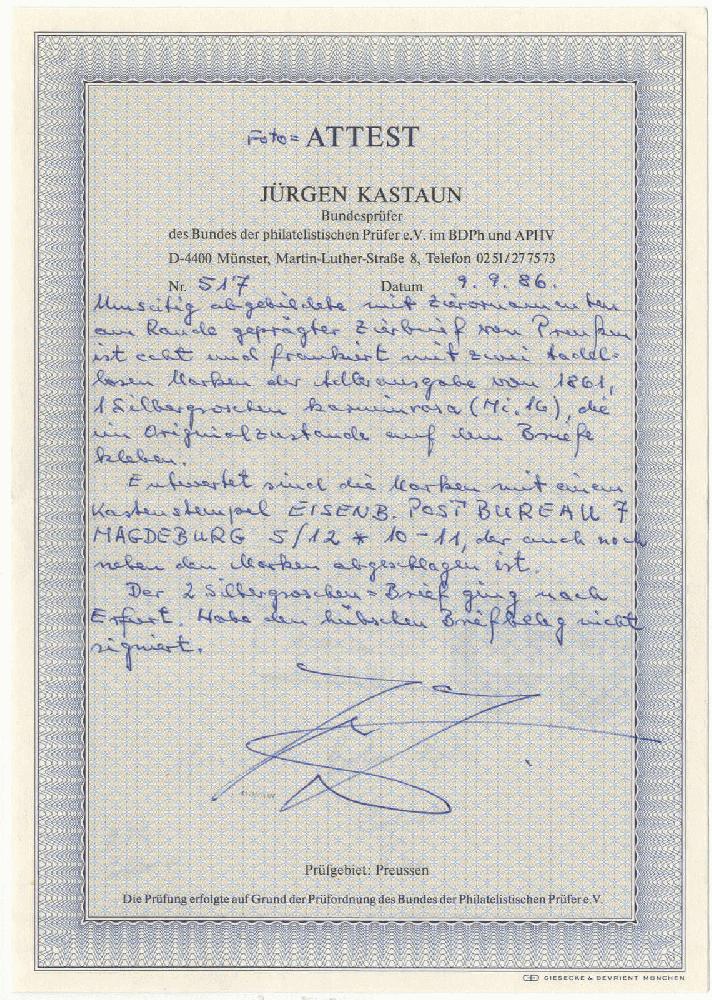 Foto= ATTEST
JÜRGEN KASTAUN
Bundesprüfer
des Bundes der philatelistischen Prüfer e.V. im BDPh und APHV
D-4400 Münster, Martin-Luther-Straße 8, Telefon 0251/277573
Nr. 517 Datum 9. 9. 86.
Umseitig abgebildete mit Zierornamenten
am Rande geprägter Zierbrief von Preußen
ist echt und frankiert mit zwei tadel-
losen Marken der Adlerausgabe von 1861,
1 Silbergroschen karminrosa (Mi. 16), die
im Originalzustande auf dem Briefe
kleben.
Entwertet sind die Marken mit einem
Kastenstempel EISENB. POST BUREAU 7
MAGDEBURG 5/12 * 10-11, der auch noch
neben den Marken abgeschlagen ist.
Der 2 Silbergroschen=Brief ging nach
Erfurt. Habe den hübschen Briefbeleg nicht
signiert.
Prüfgebiet: Preussen
Die Prüfung erfolgte auf Grund der Prüfordnung des Bundes der Philatelistischen Prüfer e.V.
GIESECKE & DEVRIENT MÜNCHEN